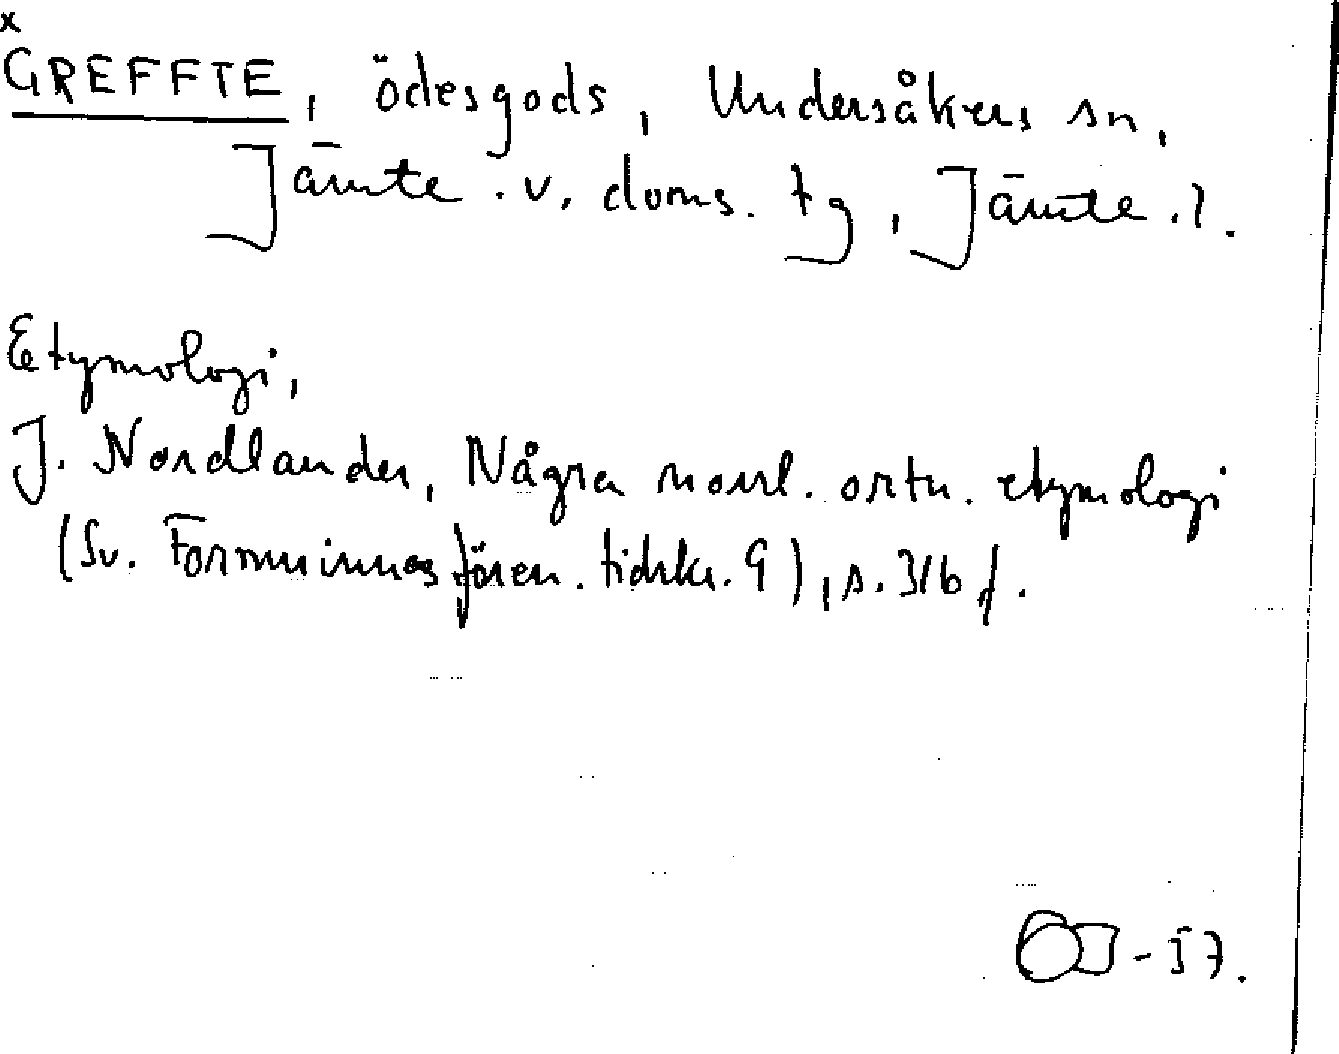 x
GREFFTE, ödesgods, Undersåkers sn,
Jämte. v. doms. tg, Jämte. l.
Etymologi,
J. Nordlander, Några norrl. ortn. etymologi
(Sv. Fornminnesfören. tidskr. 9), s. 316 f.
-57.